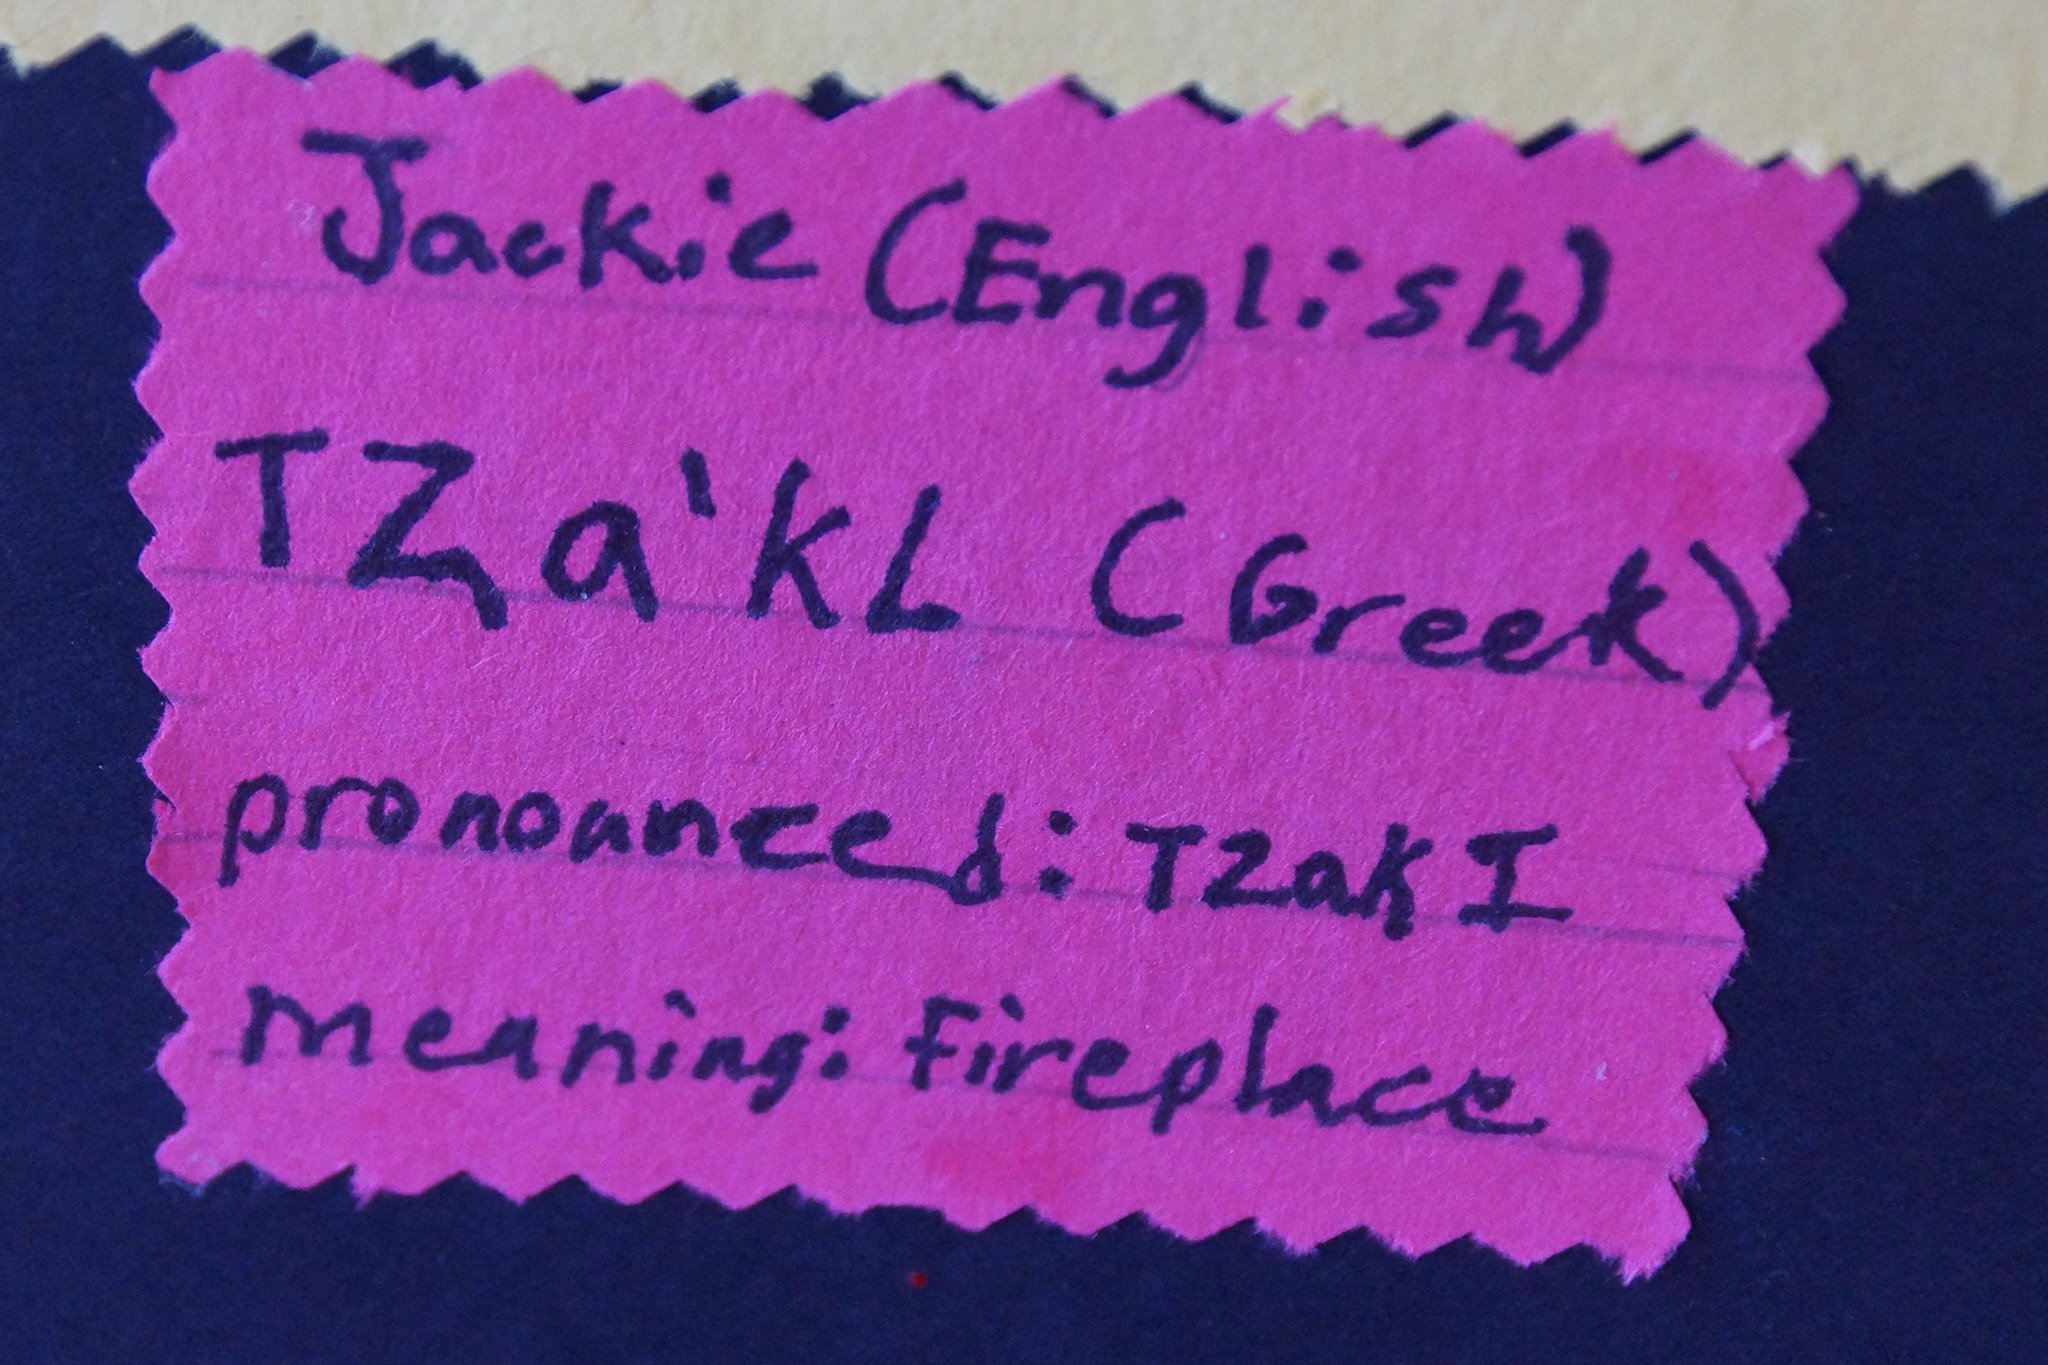 Jackie (English)
TZa'kL (Greek)
pronounced: TzakI
meaning: fireplace